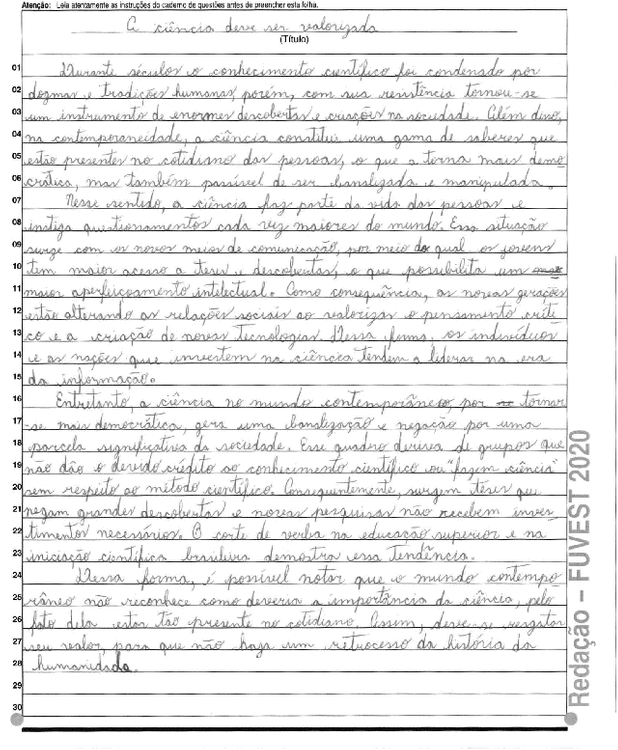 Atenção: Leia atentamente as instruções do caderno de questões antes de preencher esta folha.
A ciência deve ser valorizada
(Título)
01 Durante séculos o conhecimento científico foi condenado por
02 dogmas e tradições humanas, porém, com sua resistência tornou-se
03 um instrumento de enormes descobertas e criações na sociedade. Além disso,
04 na contemporaneidade, a ciência constitui uma gama de saberes que
05 estão presentes no cotidiano das pessoas, o que a torna mais demo
06 crática, mas também passível de ser banalizada e manipulada.
07 Nesse sentido, a ciência faz parte da vida das pessoas e
08 instiga questionamentos cada vez maiores do mundo. Essa situação
09 surge com os novos meios de comunicação, por meio do qual os jovens
10 tem maior acesso a teses e descobertas, o que possibilita um
11 maior aperfeiçoamento intelectual. Como consequência, as novas gerações
12 estão alterando as relações sociais ao valorizar o pensamento críti
13 co e a criação de novas tecnologias. Dessa forma, os indivíduos
14 e as nações que investem na ciência tendem a liderar na era
15 da informação.
16 Entretanto, a ciência no mundo contemporâneo, por tornar
17 -se mais democrática, gera uma banalização e negação por uma
18 parcela significativa da sociedade. Esse quadro deriva de grupos que
19 não dão o devido crédito ao conhecimento científico ou "fazem ciência"
20 sem respeito ao método científico. Consequentemente, surgem teses que
21 negam grandes descobertas e novas pesquisas não recebem inves
22 timentos necessários. O corte de verba na educação superior e na
23 iniciação científica brasileira demostra essa tendência.
24 Dessa forma, é possível notar que o mundo contempo
25 râneo não reconhece como deveria a importância da ciência, pelo
26 fato dela estar tão presente no cotidiano. Assim, deve-se resgatar
27 seu valor, para que não haja um retrocesso da história da
28 humanidade.
29
30
Redação – FUVEST 2020